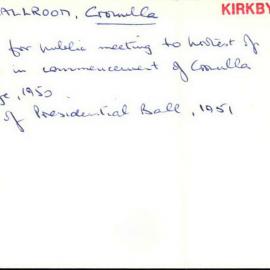 ALLROOM, Cronulla
KIRKBY
for public meeting to protest of
in commencement of Cronulla
ge, 1950
of Presidential Ball, 1951